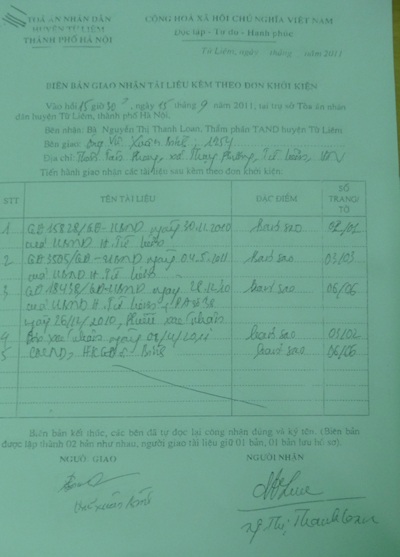 TOÀ ÁN NHÂN DÂN
HUYỆN TỪ LIÊM
THÀNH PHỐ HÀ NỘI
CỘNG HOÀ XÃ HỘI CHỦ NGHĨA VIỆT NAM
Độc lập - Tự do - Hạnh phúc
Từ Liêm, ngày tháng năm 2011
BIÊN BẢN GIAO NHẬN TÀI LIỆU KÈM THEO ĐƠN KHỞI KIỆN
Vào hồi 15 giờ 30, ngày 15 tháng 9 năm 2011, tại trụ sở Tòa án nhân
dân huyện Từ Liêm, thành phố Hà Nội.
Bên nhận: Bà Nguyễn Thị Thanh Loan, Thẩm phán TAND huyện Từ Liêm
Bên giao: Ông Xuân 1954
Địa chỉ: xã Thụy Phương, Từ Liêm, HN
Tiến hành giao nhận các tài liệu sau kèm theo đơn khởi kiện:
STT TÊN TÀI LIỆU ĐẶC ĐIỂM SỐ TRANG/ TỜ
1 QĐ 15828/QĐ-UBND ngày 30.11.2010 bản sao 02/01
của UBND H. Từ Liêm
2 QĐ 3505/QĐ-UBND ngày 04.5.2011 bản sao 03/03
của UBND H. Từ Liêm
3 QĐ 18438/QĐ-UBND ngày 28.12.20 bản sao 06/06
của UBND H. Từ Liêm
ngày 28/12/2010, Phiếu xác nhận
4 xác nhận ngày 2011 bản sao 03/02
5 CMND, HK bản sao 06/06
Biên bản kết thúc, các bên đã tự đọc lại công nhận đúng và ký tên. (Biên bản
được lập thành 02 bản như nhau, người giao tài liệu giữ 01 bản, 01 bản lưu hồ sơ).
NGƯỜI GIAO
NGƯỜI NHẬN
Ng Thị Thanh Loan